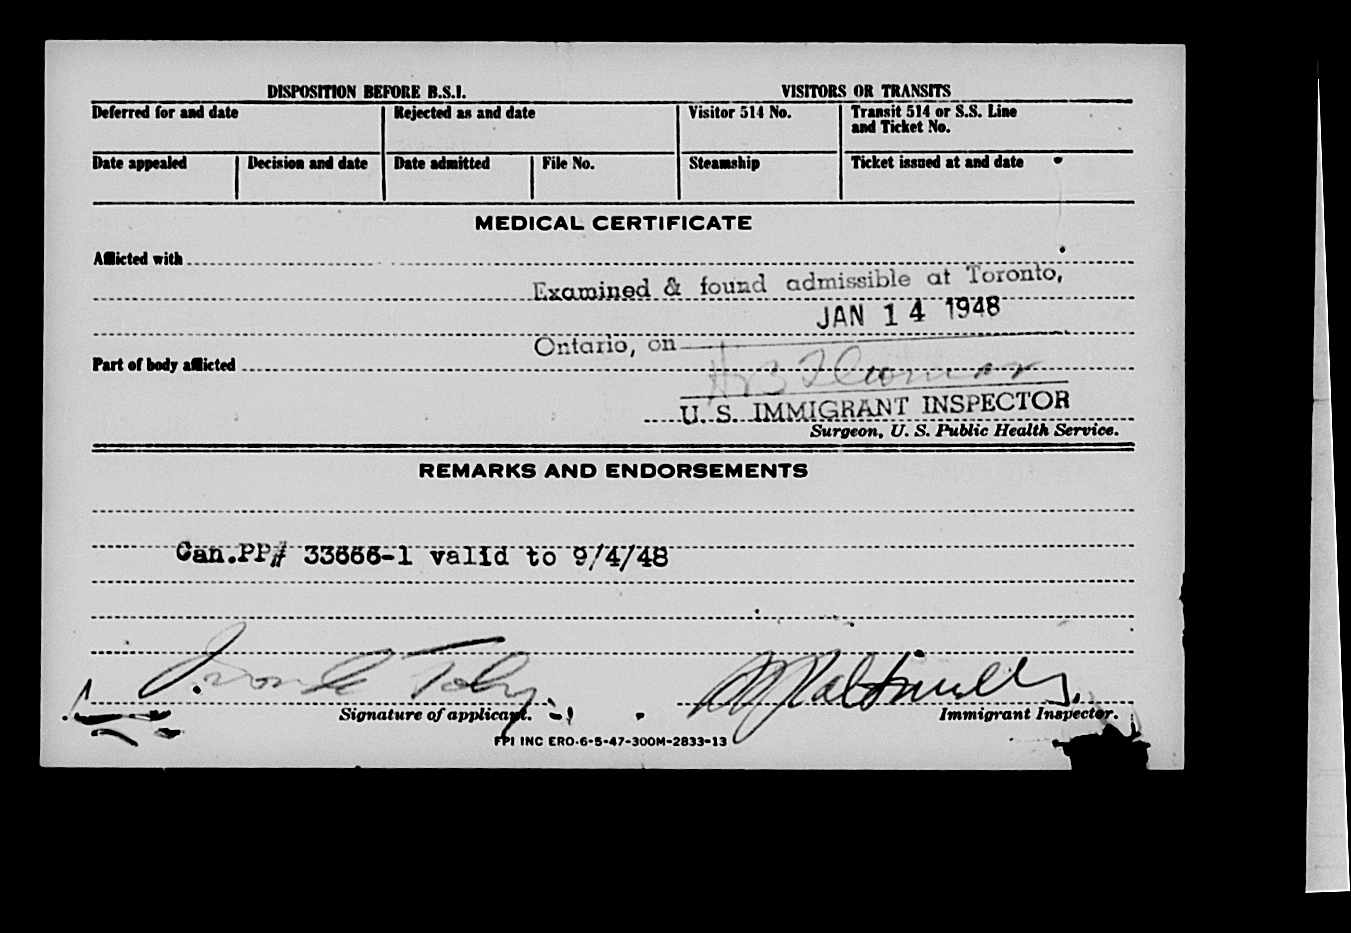 DISPOSITION BEFORE B.S.I. VISITORS OR TRANSITS
Deferred for and date Rejected as and date Visitor 514 No. Transit 514 or S.S. Line
and Ticket No.
Date appealed Decision and date Date admitted File No. Steamship Ticket issued at and date
MEDICAL CERTIFICATE
Afflicted with
Examined & found admissible at Toronto,
JAN 14 1948
Ontario, on
Part of body afflicted
U. S. IMMIGRANT INSPECTOR
Surgeon, U. S. Public Health Service.
REMARKS AND ENDORSEMENTS
Can.PP# 33666-1 valid to 9/4/48
Signature of applicant. Immigrant Inspector.
FPI INC ERO-6-5-47-300M-2833-13